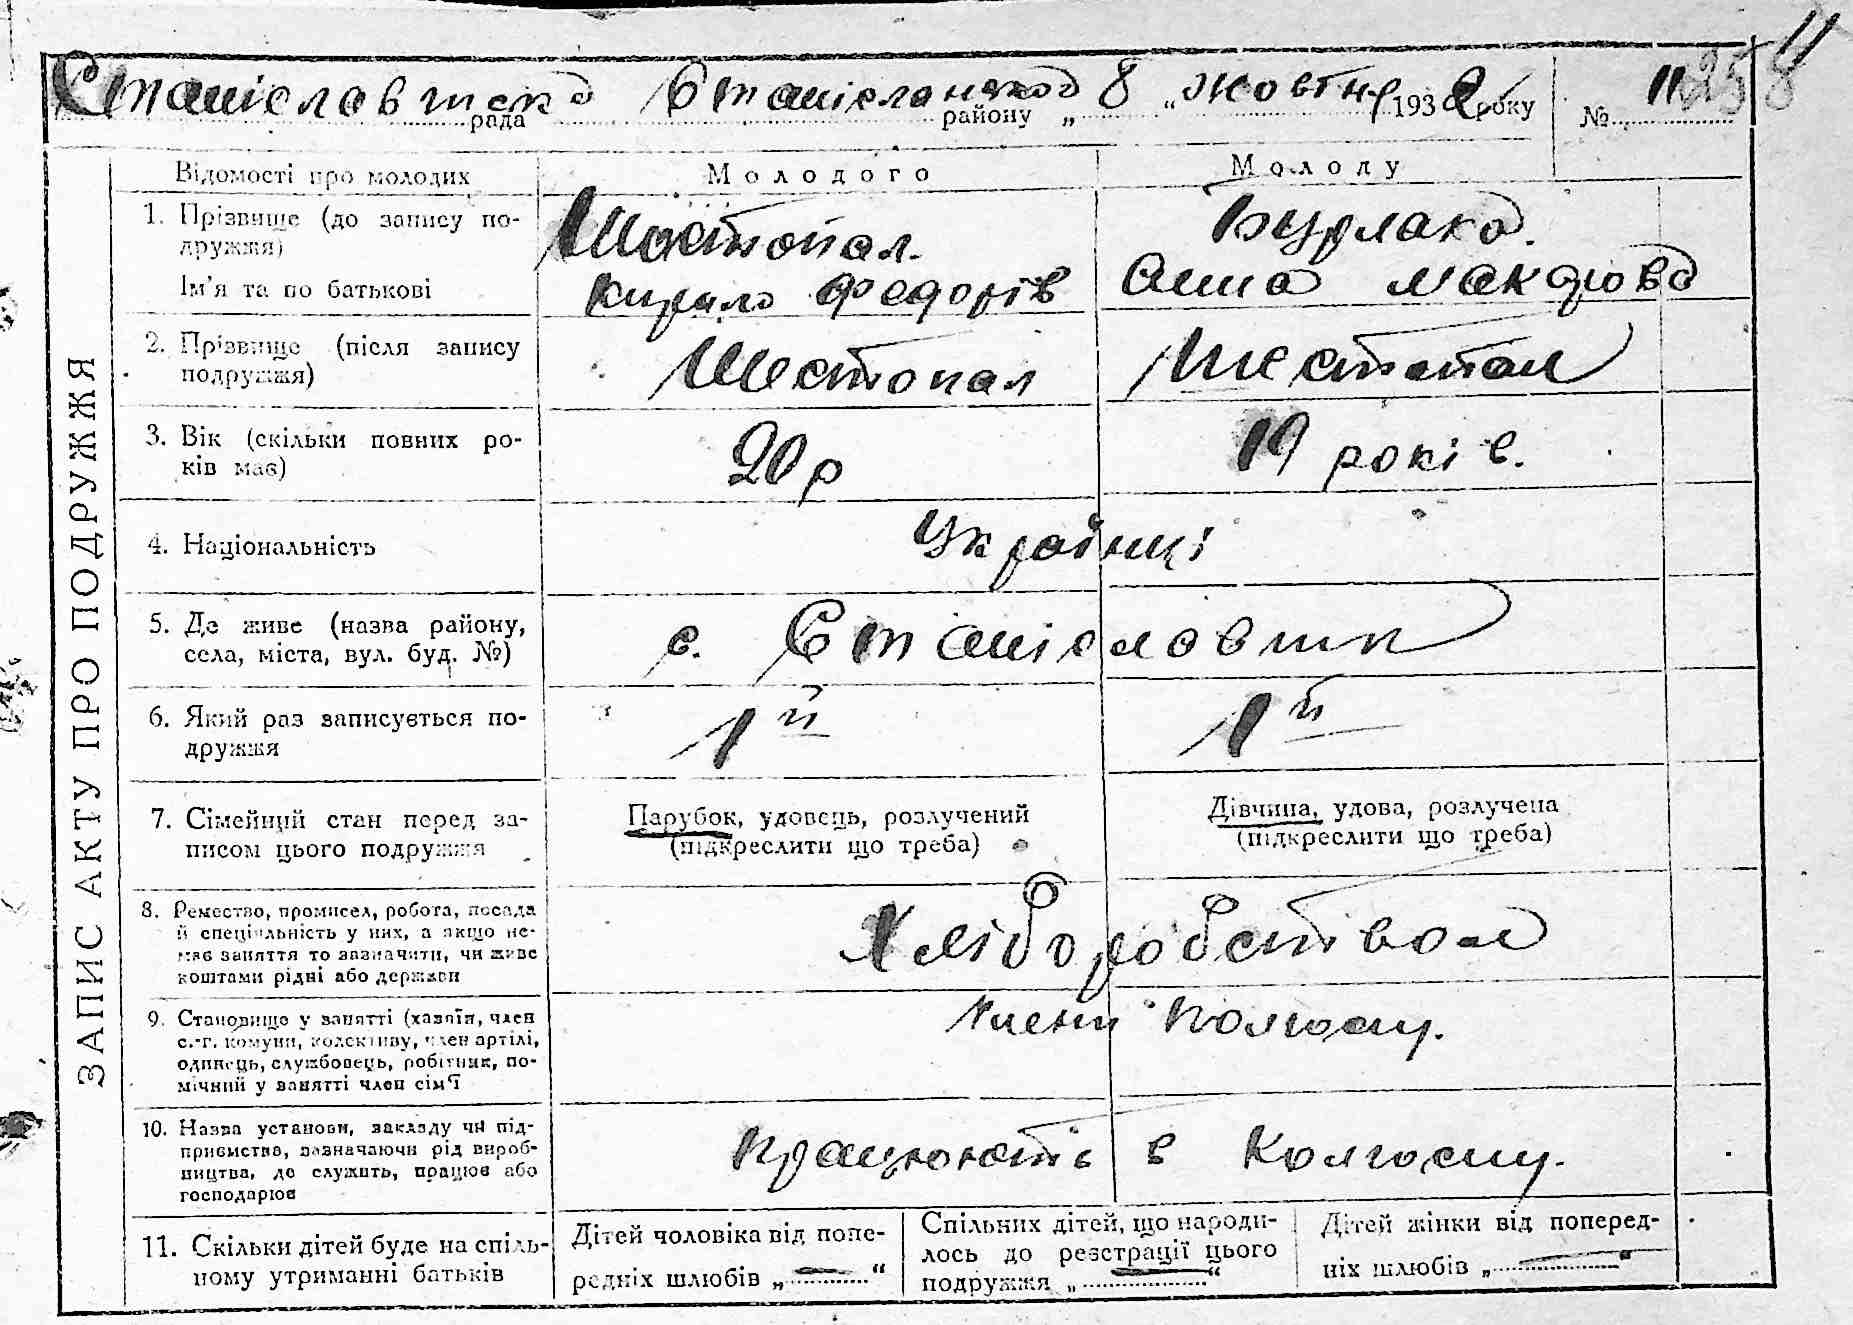 Станіславчиска Станіславчикой 8 „ жовтня
рада району „ 1932 року № 11 258
11
ЗАПИС АКТУ ПРО ПОДРУЖЖЯ
Відомості про молодих Молодого Молоду
1. Прізвище (до запису по-
дружжя)
Шостопал. Бурлака.
Ім'я та по батькові
Кирило Федорів Анна Макарова
2. Прізвище (після запису
подружжя)
Шестопал Шестопал
3. Вік (скільки повних ро-
ків має)
20 р 19 років.
4. Національність
Українці
5. Де живе (назва району,
села, міста, вул. буд. №)
с. Станіславчик
6. Який раз записується по-
дружжя
1й 1й
7. Сімейний стан перед за-
писом цього подружжя
Парубок, удовець, розлучений
(підкреслити що треба)
Дівчина, удова, розлучена
(підкреслити що треба)
8. Ремество, промисел, робота, посада
й спеціяльність у них, а якщо не-
має заняття то зазначити, чи живе
коштами рідні або держави
Хліборобством
9. Становище у занятті (хазяїн, член
с.-г. комуни, колективу, член артілі,
одинець, службовець, робітник, по-
мічний у занятті член сім'ї
Члени Колгоспу.
10. Назва установи, закладу чи під-
приємства, зазначаючи рід вироб-
ництва, де служить, працює або
господарює
Працюють в Колгоспу.
11. Скільки дітей буде на спіль-
ному утриманні батьків
Дітей чоловіка від попе-
редніх шлюбів „ — “
Спільних дітей, що народи-
лось до реєстрації цього
подружжя „ — “
Дітей жінки від поперед-
ніх шлюбів „ — “